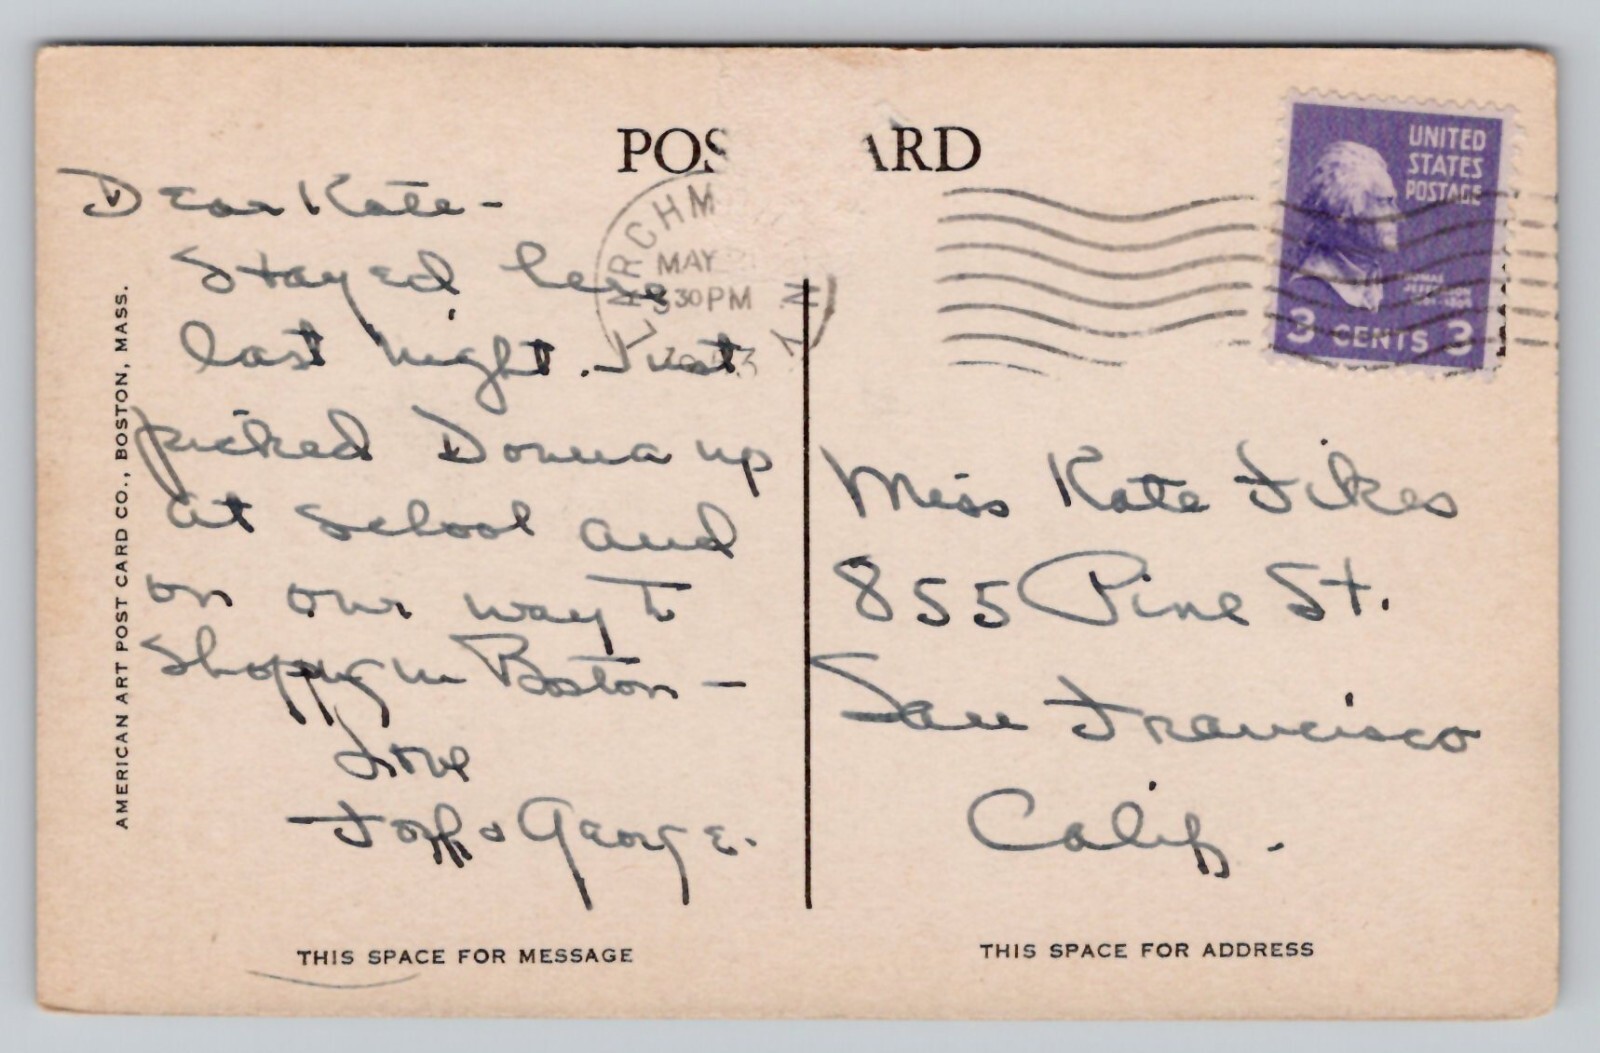 POS ARD
UNITED
STATES
POSTAGE
3 CENTS 3
LARCHM
MAY
30PM
N Y
Dear Kate -
Stayed here
last night. Just
picked Donna up
at school and
on our way to
shoppg in Boston -
Love
& George.
Miss Kate Fikes
855 Pine St.
San Francisco
Calif.
AMERICAN ART POST CARD CO., BOSTON, MASS.
THIS SPACE FOR MESSAGE
THIS SPACE FOR ADDRESS